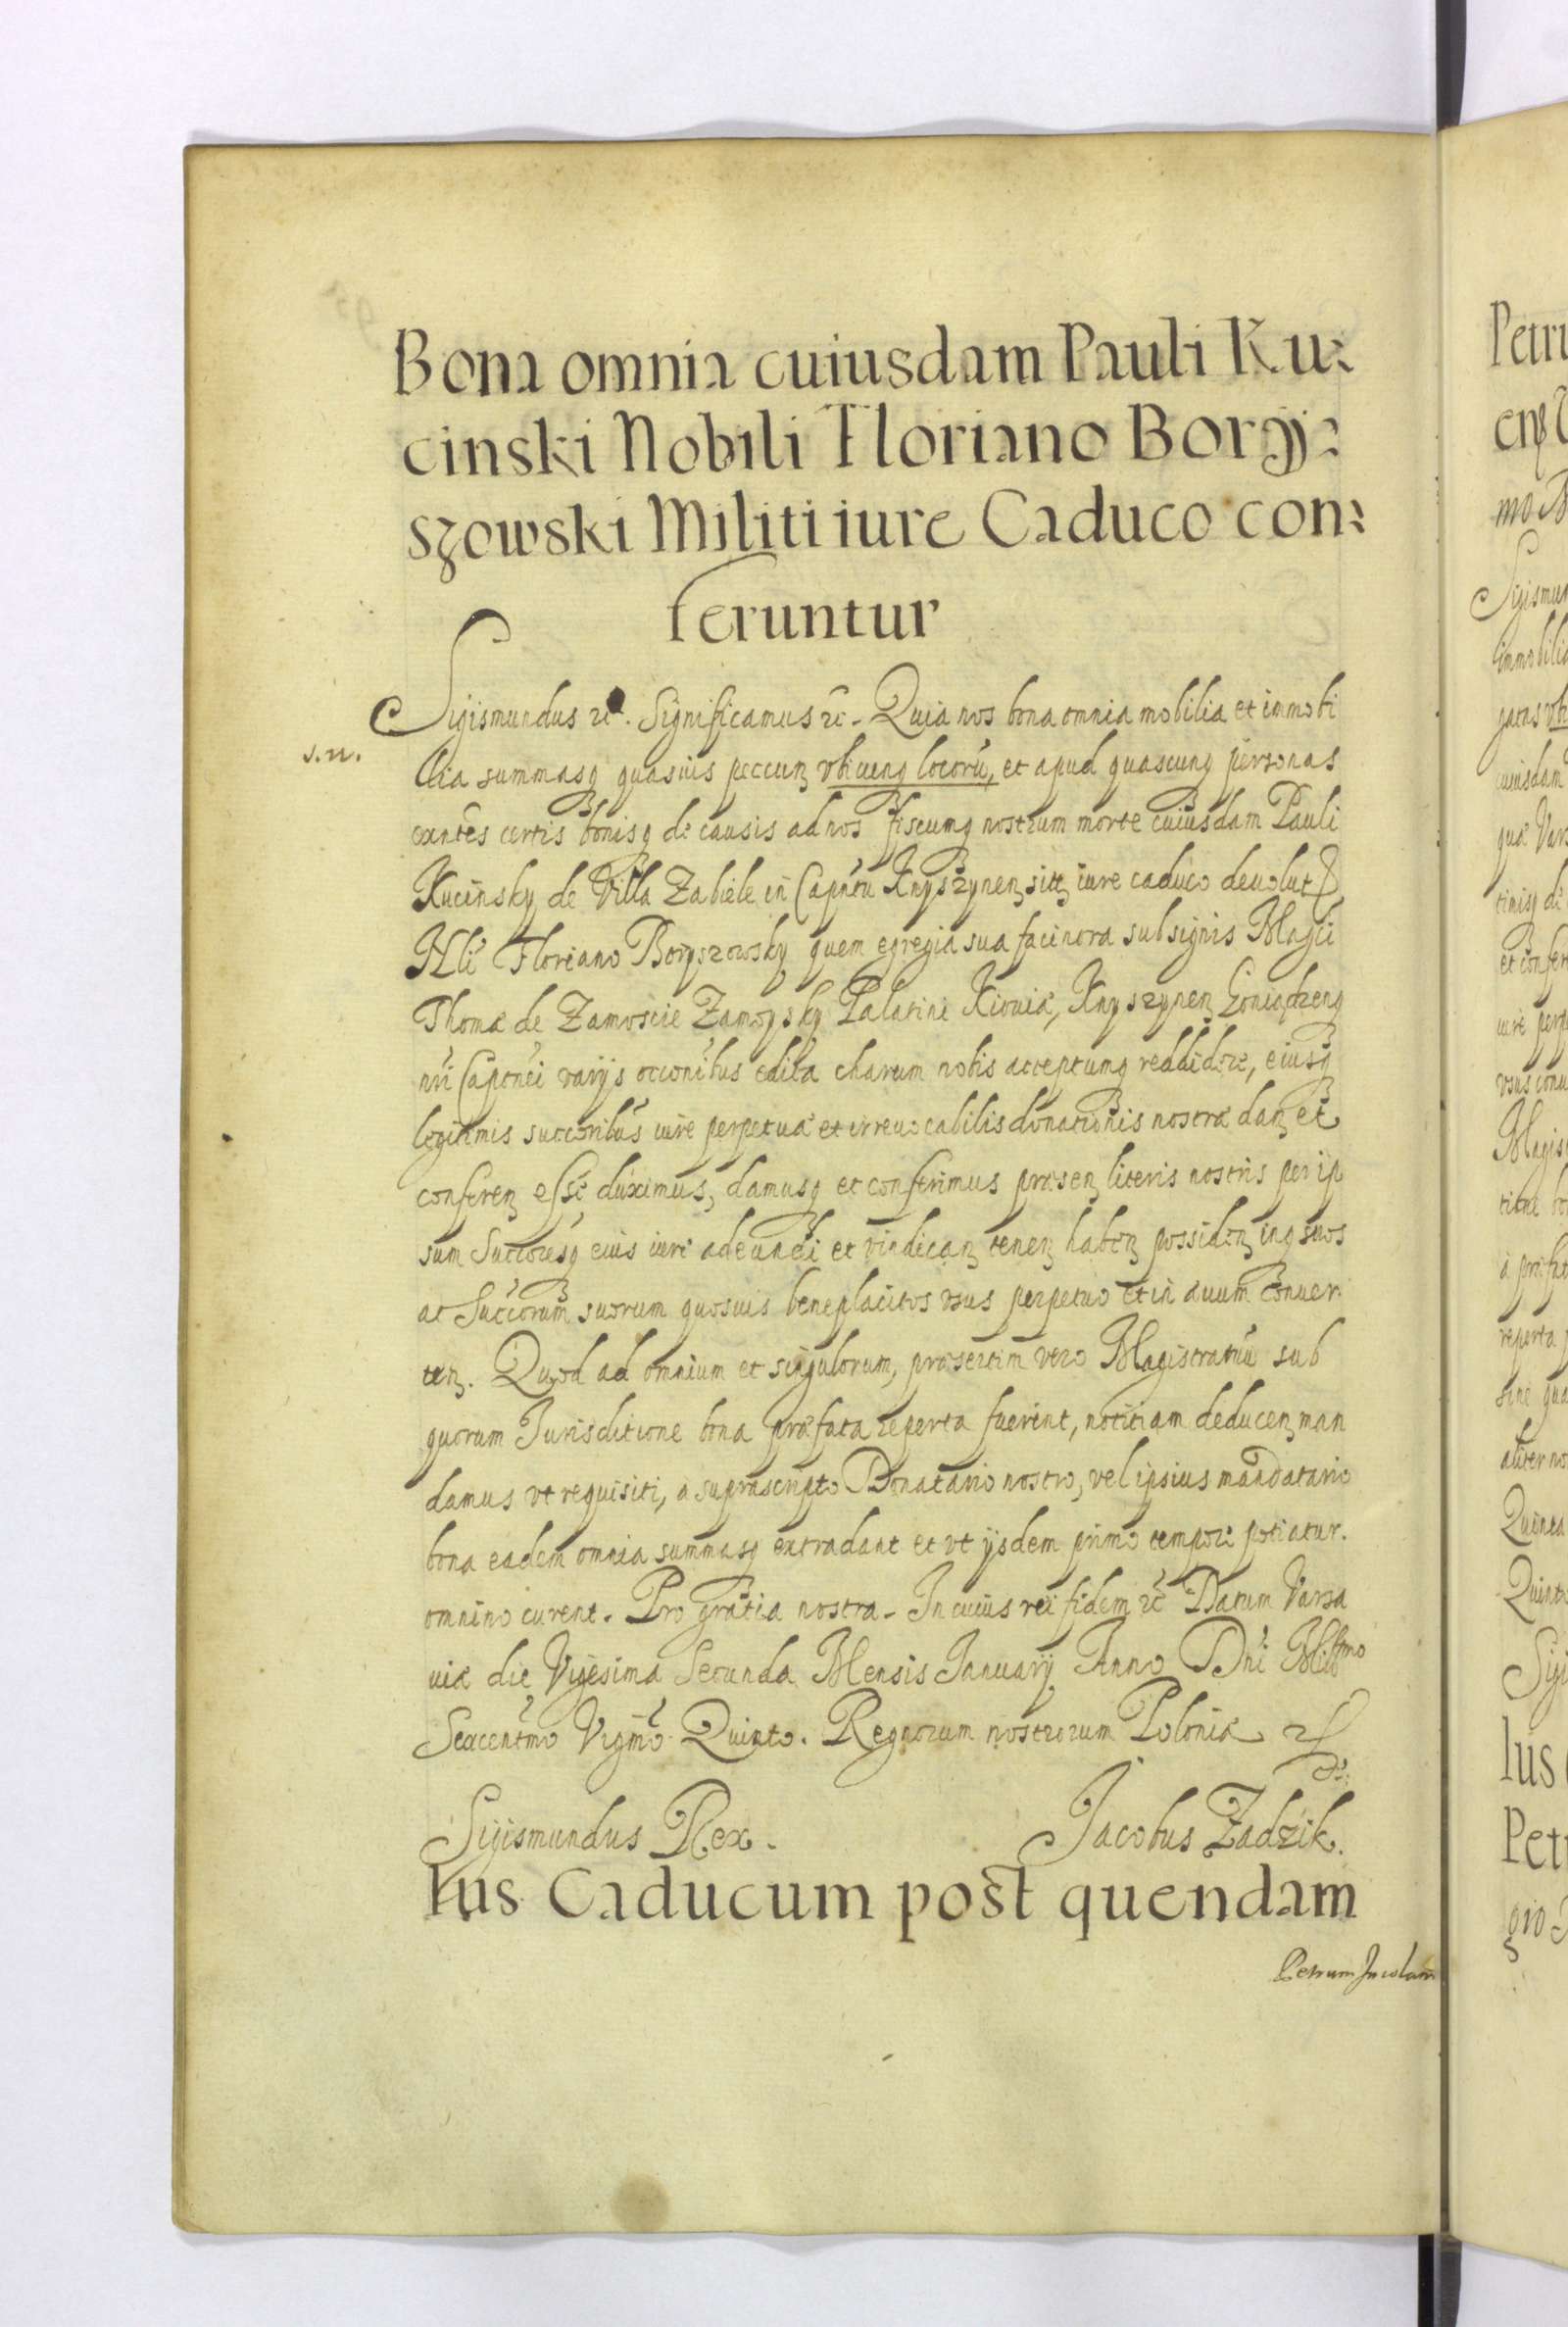 Bona omnia cuiusdam Pauli Ku:
cinski Nobili Floriano Bory:
szowski Militi iure Caduco con:
feruntur
Sigismundus etc. Significamus etc. Quia nos bona omnia mobilia et immobi
s.n.
lia summasq quasuis peccun vbicunq locorū, et apud quascunq personas
exntēs certis bonisq de causis ad nos fiscumq nostrum morte cuiusdam Pauli
Kucinsky de Villa Zabiele in Capntu Knyszynen sitt iure caduco deuolut
Nli Floriano Boryszowsky quem egregia sua facinora sub signis Magci
Thomæ de Zamoscie Zamoysky Palatini Kiouiæ, Knyszynen Goniądzenq
nri Captnei varijs occonibus edita charum nobis acceptumq reddidere, eiusq
legitimis succoribus iure perpetuæ et irreuocabilis donationis nostræ dan et
conferen esse duximus, damusq et conferimus præsen literis nostris per ip
sum Succoresq eius iure adeundi et vindican tenen haben possiden inq suos
ac Succorum suorum quosuis beneplacitos vsus perpetuo et in æuum conuer
ten. Quod ad omnium et singulorum, præsertim vero Magistratuū sub
quorum Jurisditione bona præfata reperta fuerint, notitiam deducen man
damus vt requisiti, a suprascripto Donatario nostro, vel ipsius mandatario
bona eadem omnia summasq extradant et vt ijsdem primo tempore potiatur.
omnino curent. Pro gratia nostra. In cuius rei fidem etc Datum Varsa
uiæ die Vigesima Secunda Mensis Januarij Anno Dni Millmo
Sexcentmo Vigmo Quinto. Regnorum nostrorum Poloniæ etc
Sigismundus Rex. Jacobus Zadzik.
Ius Caducum post quendam
Petrum Incolam